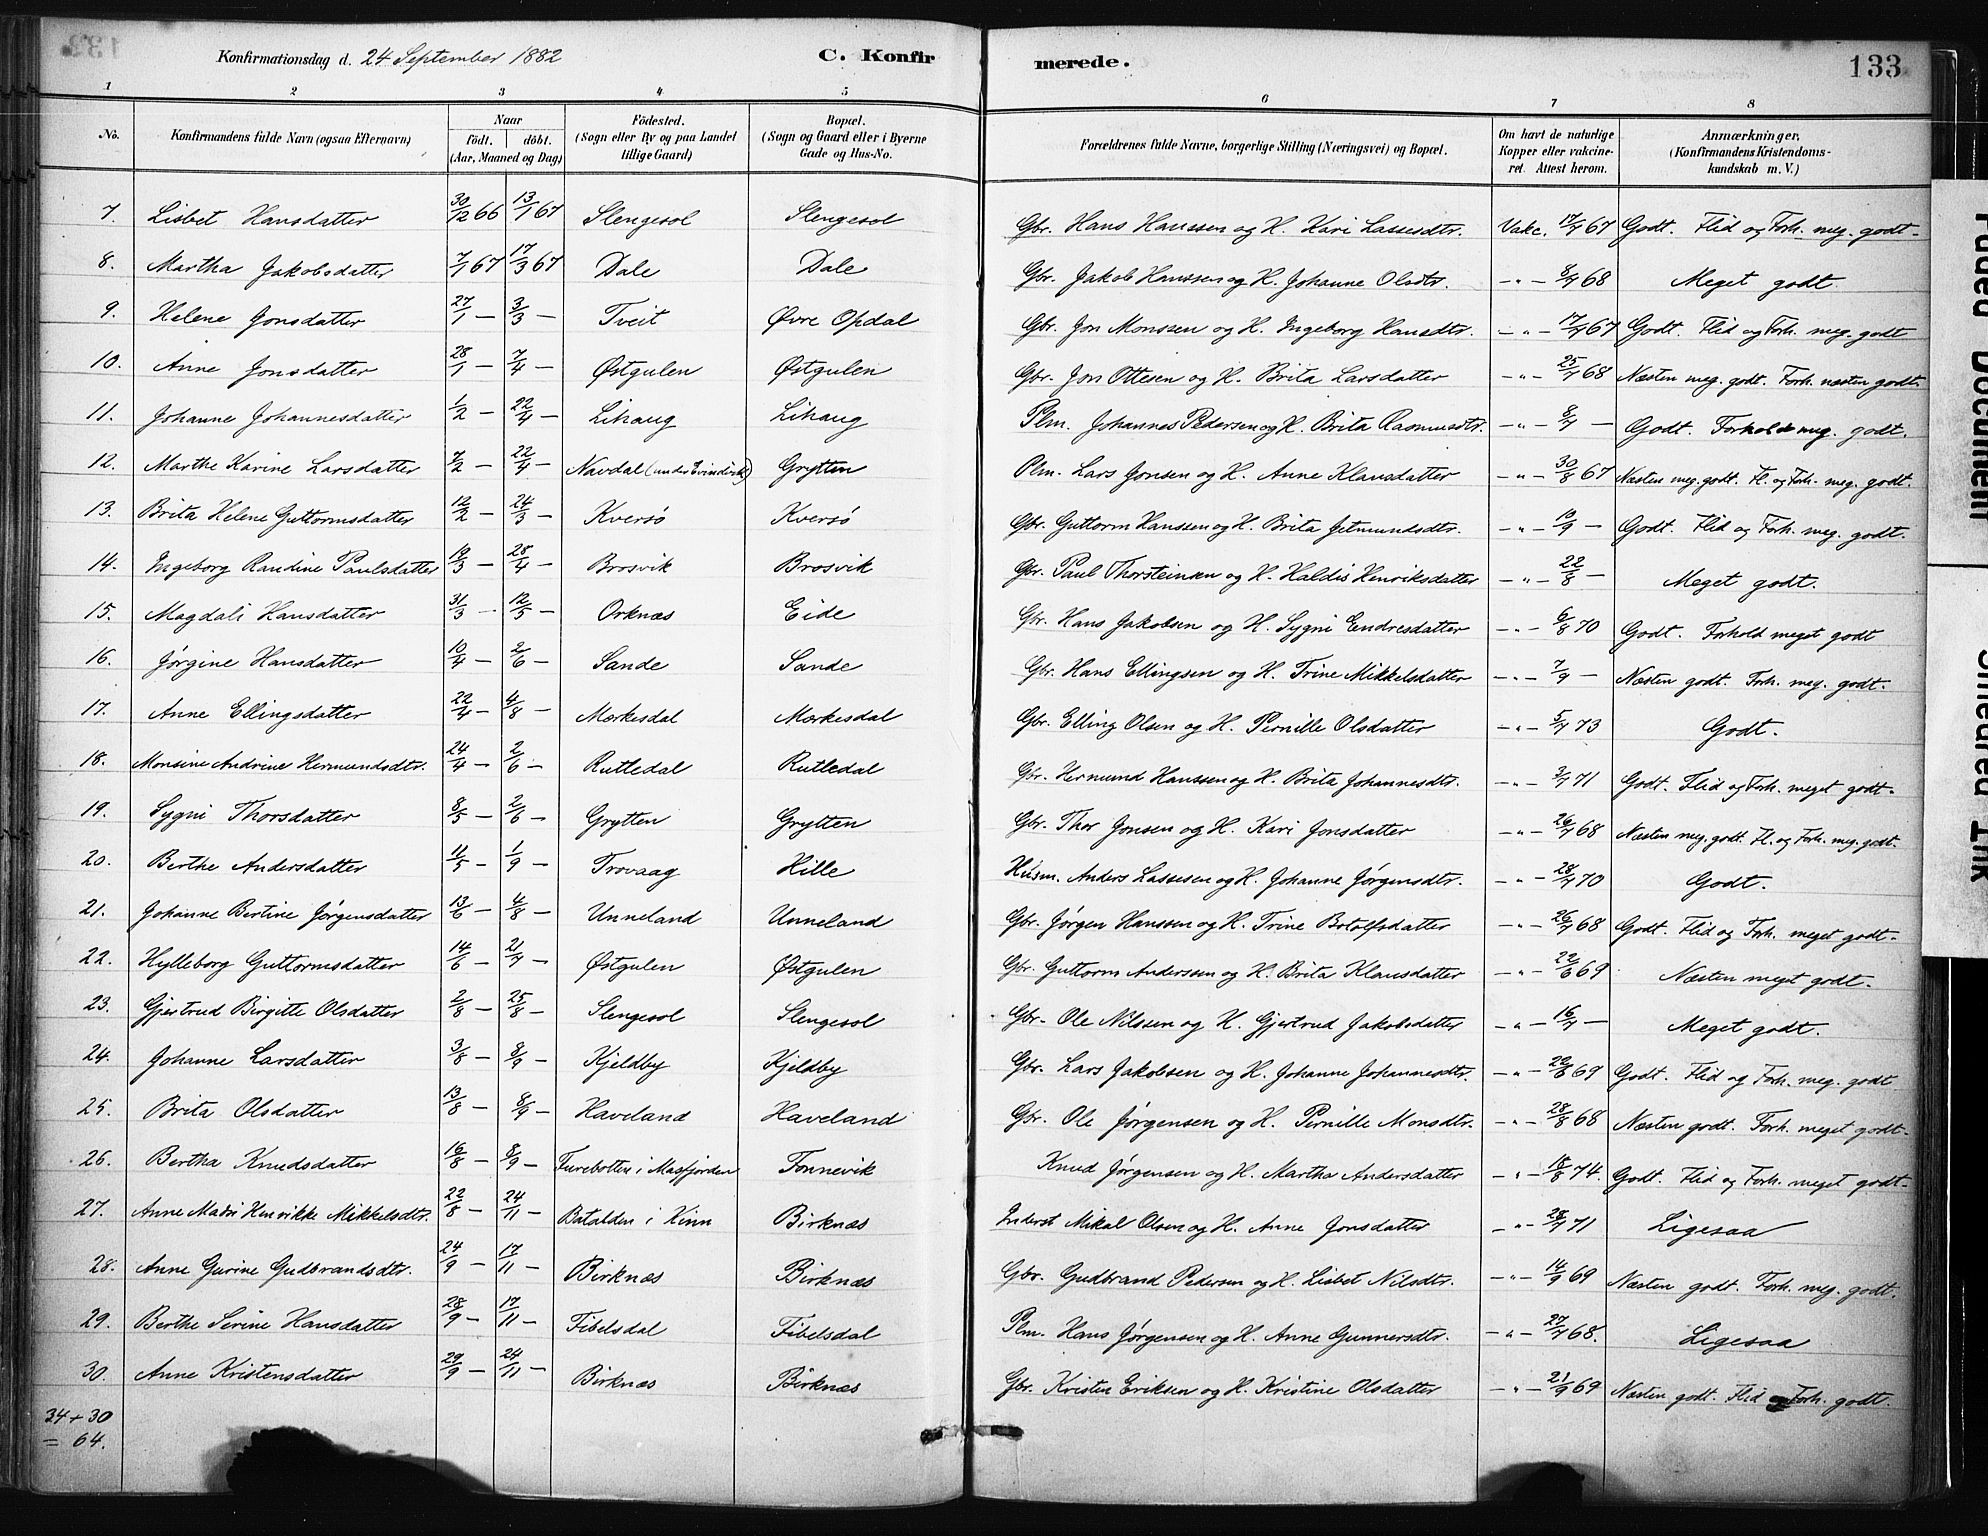 Konfirmationsdag d. 24 September 1882 C. Konfirmerede. 133
1 2 3 4 5 6 7 8
No. Konfirmandens fulde Navn (ogsaa Efternavn) Naar født. døbt. (Aar, Maaned og Dag) Fødested. (Sogn eller By og paa Landet tillige Gaard) Bopæl. (Sogn og Gaard eller i Byerne Gade og Hus-No. Forældrenes fulde Navne, borgerlige Stilling (Næringsvei) og Bopæl. Om havt de naturlige Kopper eller vakcineret. Attest herom. Anmærkninger. (Konfirmandens Kristendomskundskab m. V.)
7. Lisbet Hansdatter 30/12 66 13/1 67 Slengesol Slengesol Gbr. Hans Hanssen og H. Kari Lassesdtr. Vakc. 17/7 67 Godt. Flid og Forh. meg. godt.
8. Martha Jakobsdatter 7/1 67 17/3 67 Dale Dale Gbr. Jakob Hanssen og H. Johanne Olsdtr. -"- 8/7 68 Meget godt.
9. Helene Jonsdatter 27/1 — 3/3 — Tveit Øvre Opdal Gbr. Jon Monssen og H. Ingeborg Hansdtr. -"- 17/7 67 Godt. Flid og Forh. meg. godt
10. Anne Jonsdatter 28/1 — 7/4 — Østgulen Østgulen Gbr. Jon Ottesen og H. Brita Larsdatter -"- 25/7 68 Næsten meg. godt. Forh. næsten godt.
11. Johanne Johannesdatter 1/2 — 22/4 — Lihaug Lihaug Plm. Johannes Pedersen og H. Brita Rasmusdtr. -"- 8/7 — Godt. Forhold meg. godt.
12. Marthe Karine Larsdatter 7/2 — 22/4 — Navdal (under Evindvik) Grytten Plm. Lars Jonsen og H. Anne Klausdatter -"- 30/8 67 Næsten meg. godt. Fl. og Forh. meg. godt.
13. Brita Helene Guttormsdatter 12/2 — 24/3 — Kversø Kversø Gbr. Guttorm Hanssen og H. Brita Jetmundsdtr. -"- 10/9 — Godt. Flid og Forh. meg. godt.
14. Ingeborg Randine Paulsdatter 19/3 — 28/4 — Brosvik Brosvik Gbr. Paul Thorsteinsen og H. Haldis Henriksdatter -"- 22/8 — Meget godt.
15. Magdali Hansdatter 31/3 — 12/5 — Orknæs Eide Gbr. Hans Jakobsen og H. Sygni Endresdatter -"- 6/8 70 Godt. Forhold meget godt
16. Jørgine Hansdatter 10/4 — 2/6 — Sande Sande Gbr. Hans Ellingsen og H. Trine Mikkelsdatter -"- 7/9 — Næsten godt. Forh. meg. godt.
17. Anne Ellingsdatter 22/4 — 4/8 — Mørkesdal Mørkesdal Gbr. Elling Olsen og H. Pernille Olsdatter -"- 5/7 73 Godt.
18. Monsine Andrine Hermundsdtr. 24/4 — 2/6 — Rutledal Rutledal Gbr. Hermund Hanssen og H. Brita Johannesdtr. -"- 3/7 71 Godt. Flid og Forh. meget godt.
19. Sygni Thorsdatter 8/5 — 2/6 — Grytten Grytten Gbr. Thor Jonsen og H. Kari Jonsdatter -"- 26/7 68 Næsten meg. godt. Fl. og Forh. meg. godt.
20. Berthe Andersdatter 11/5 — 1/9 — Trovaag Hille Husm. Anders Lassesen og H. Johanne Jørgensdtr. -"- 28/7 70 Godt.
21. Johanne Bertine Jørgensdatter 13/6 — 4/8 — Unneland Unneland Gbr. Jørgen Hanssen og H. Trine Botolfsdatter -"- 26/7 68 Godt. Flid og Forh. meget godt.
22. Hylleborg Guttormsdatter 14/6 — 21/7 — Østgulen Østgulen Gbr. Guttorm Anderssen og H. Brita Klausdatter -"- 22/6 69 Næsten meget godt.
23. Gjertrud Birgitte Olsdatter 2/8 — 25/8 — Slengesol Slengesol Gbr. Ole Nilssen og H. Gjertrud Jakobsdatter -"- 16/7 — Meget godt.
24. Johanne Larsdatter 3/8 — 8/9 — Kjeldby Kjeldby Gbr. Lars Jakobsen og H. Johanne Johannesdtr. -"- 22/8 69 Godt. Flid og Forh. meg. godt
25. Brita Olsdatter 13/8 — 8/9 — Haveland Haveland Gbr. Ole Jørgensen og H. Pernille Monsdtr. -"- 28/8 68 Næsten godt. Forh. meget godt.
26. Bertha Knudsdatter 16/8 — 8/9 — Furebotten i Masfjorden Tonnevik Knud Jørgensen og H. Martha Andersdatter -"- 18/8 74. Godt. Flid og Forh. meget godt.
27. Anne Madsi Henrikke Mikkelsdtr. 22/8 — 24/11 — Batalden i Kinn Birknæs Inderst Mikal Olsen og H. Anne Jonsdatter -"- 28/7 71 Ligesaa
28. Anne Gurine Gudbrandsdtr. 24/9 — 17/11 — Birknæs Birknæs Gbr. Gudbrand Pedersen og H. Lisbet Nilsdtr. -"- 14/9 69 Næsten godt. Forh. meg. godt.
29. Berthe Serine Hansdatter 28/9 — 17/11 — Fibelsdal Fibelsdal Plm. Hans Jørgensen og H. Anne Gunnersdtr. -"- 27/7 68. Ligesaa
30. Anne Kristensdatter 29/9 — 24/11 — Birknæs Birknæs Gbr. Kristen Eriksen og H. Kristine Olsdatter -"- 21/9 69 Næsten godt. Flid og Forh. godt.
34 + 30
= 64.
Faded Document
Smeared Ink